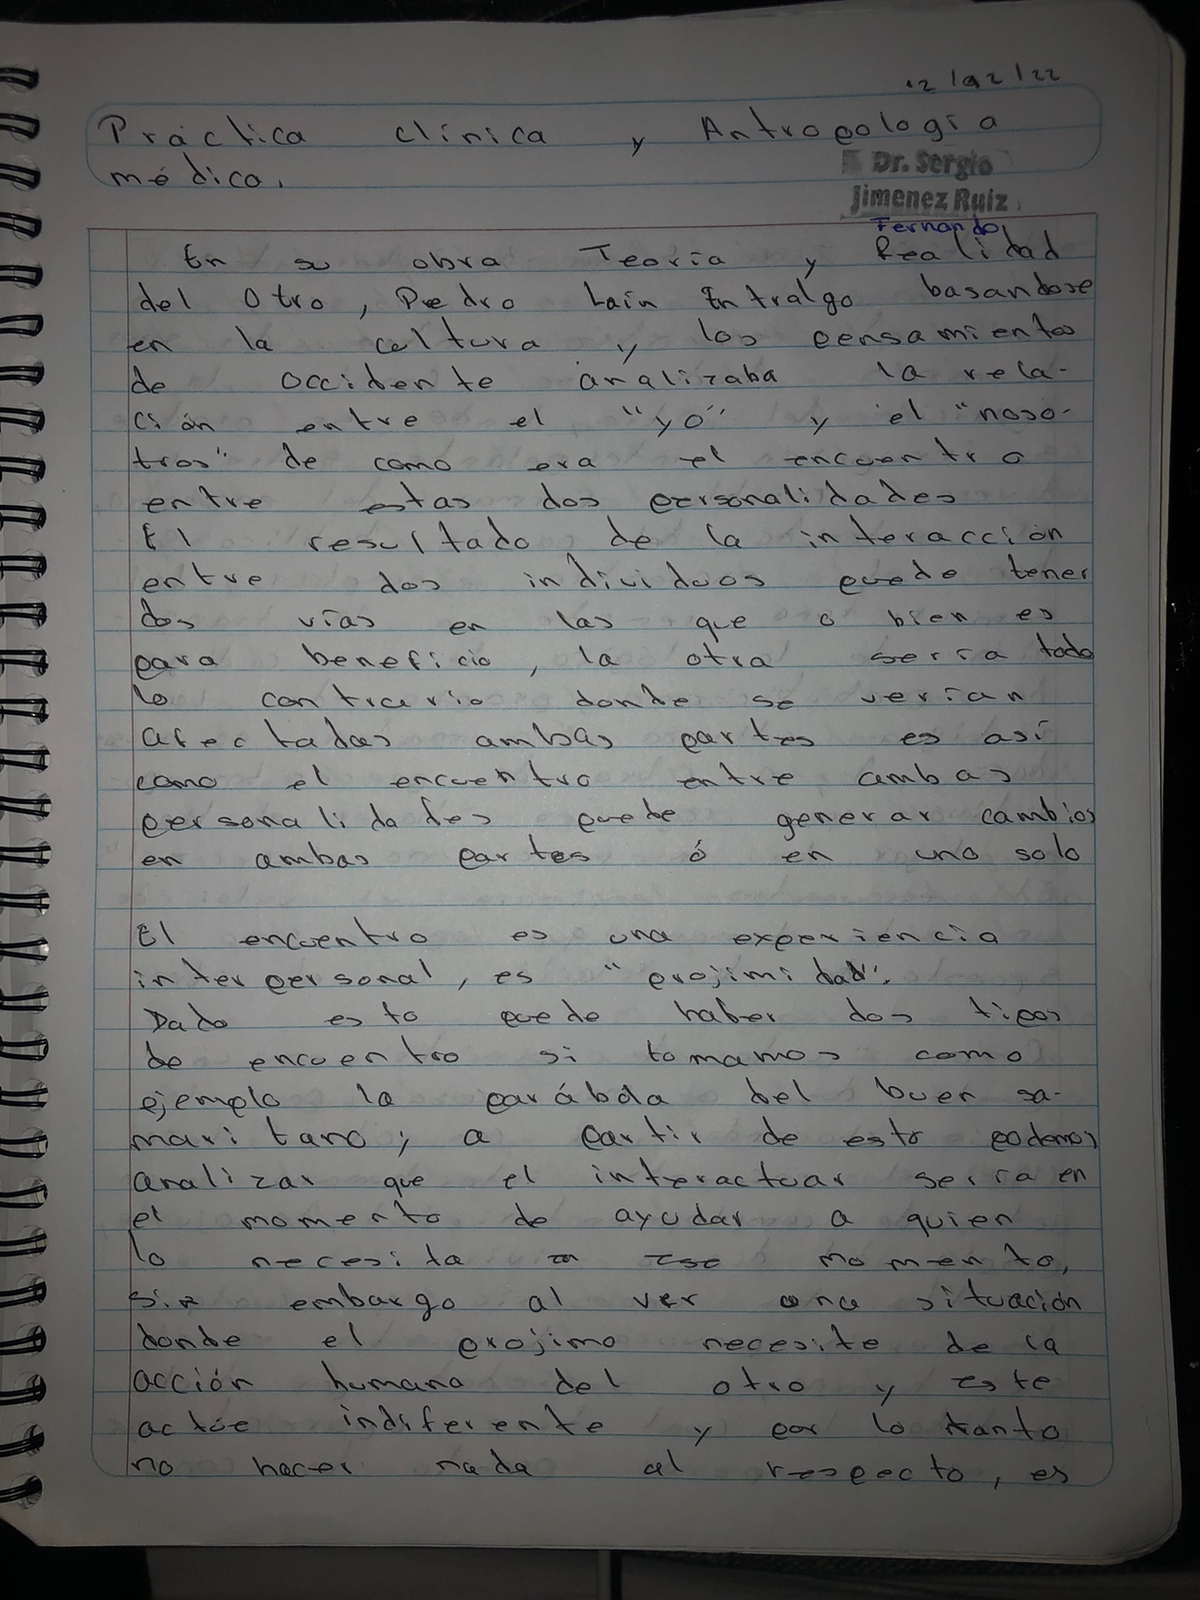 12/02/22
Práctica clínica y Antropologia
médica.
Dr. Sergio
Jimenez Ruiz
Fernando,
En su obra Teoría y Realidad
del Otro, Pedro Laín Entralgo basandose
en la cultura y los pensamientos
de occidente analizaba la rela-
ción entre el "yo" y el "noso-
tros" de como era el encuentro
entre estas dos personalidades
El resultado de la interacción
entre dos individuos puede tener
dos vías en las que o bien es
para beneficio, la otra sería todo
lo contrario donde se verían
afectadas ambas partes es así
como el encuentro entre ambas
personalidades puede generar cambios
en ambas partes ó en uno solo
El encuentro es una experiencia
interpersonal, es "projimidad".
Dado esto puede haber dos tipos
de encuentro si tomamos como
ejemplo la parábola del buen sa-
maritano; a partir de esto podemos
analizar que el interactuar sería en
el momento de ayudar a quien
lo necesita en ese momento,
sin embargo al ver una situación
donde el projimo necesite de la
acción humana del otro y este
actúe indiferente y por lo tanto
no hacer nada al respecto, es